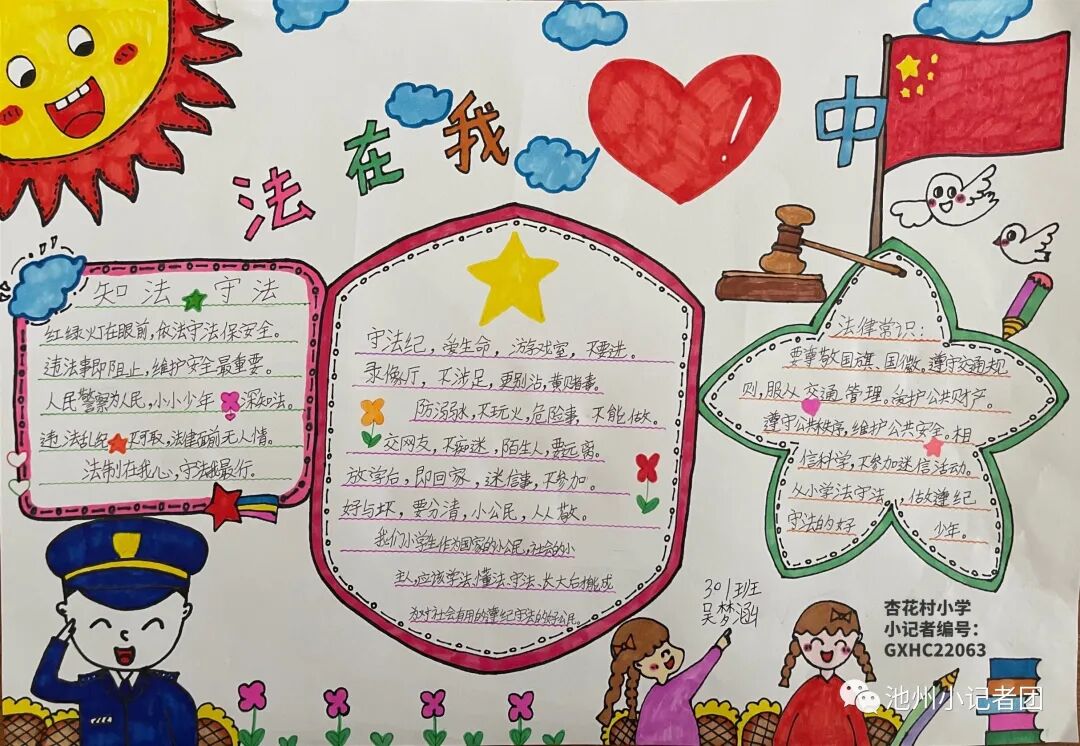 法在我中
知法守法
红绿灯在眼前，依法守法保安全。
违法事即阻止，维护安全最重要。
人民警察为人民，小小少年深知法。
违法乱纪不可取，法律面前无人情。
法制在我心，守法我最行。
守法纪，爱生命，游戏室，不要进。
录像厅，不涉足，更别沾，黄赌毒。
防溺水，不玩火，危险事，不能做。
交网友，不痴迷，陌生人，要远离。
放学后，即回家，迷信事，不参加。
好与坏，要分清，小公民，人人敬。
我们小学生作为国家的小公民，社会的小
主人，应该学法、懂法、守法、长大后才能成
为对社会有用的遵纪守法的好公民。
法律常识：
要尊敬国旗、国徽，遵守交通规
则，服从交通管理。爱护公共财产。
遵守公共秩序，维护公共安全。相
信科学，不参加迷信活动。
从小学法守法，做遵纪
守法的好少年。
301班
吴梦涵
杏花村小学
小记者编号：
GXHC22063
池州小记者团